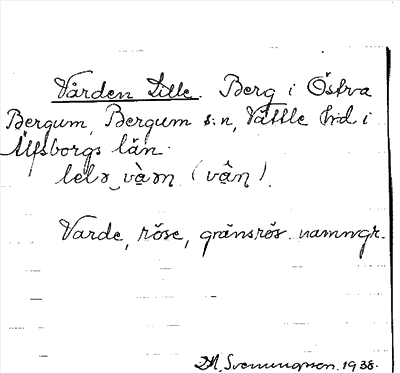 Vården Lille. Berg i Östra
Bergum, Bergum s:n, Vättle hrd i
Älfsborgs län.
lelə vàən (vân).
Varde, röse, gränsrös. namngr.
Svenungsson. 1938.